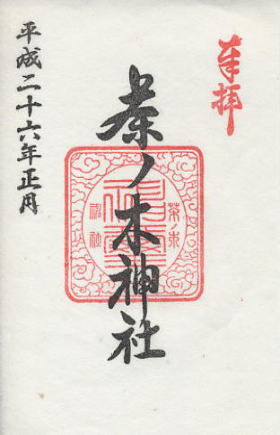 奉拝
茶ノ木神社
茶ノ木
神社
平成二十六年正月